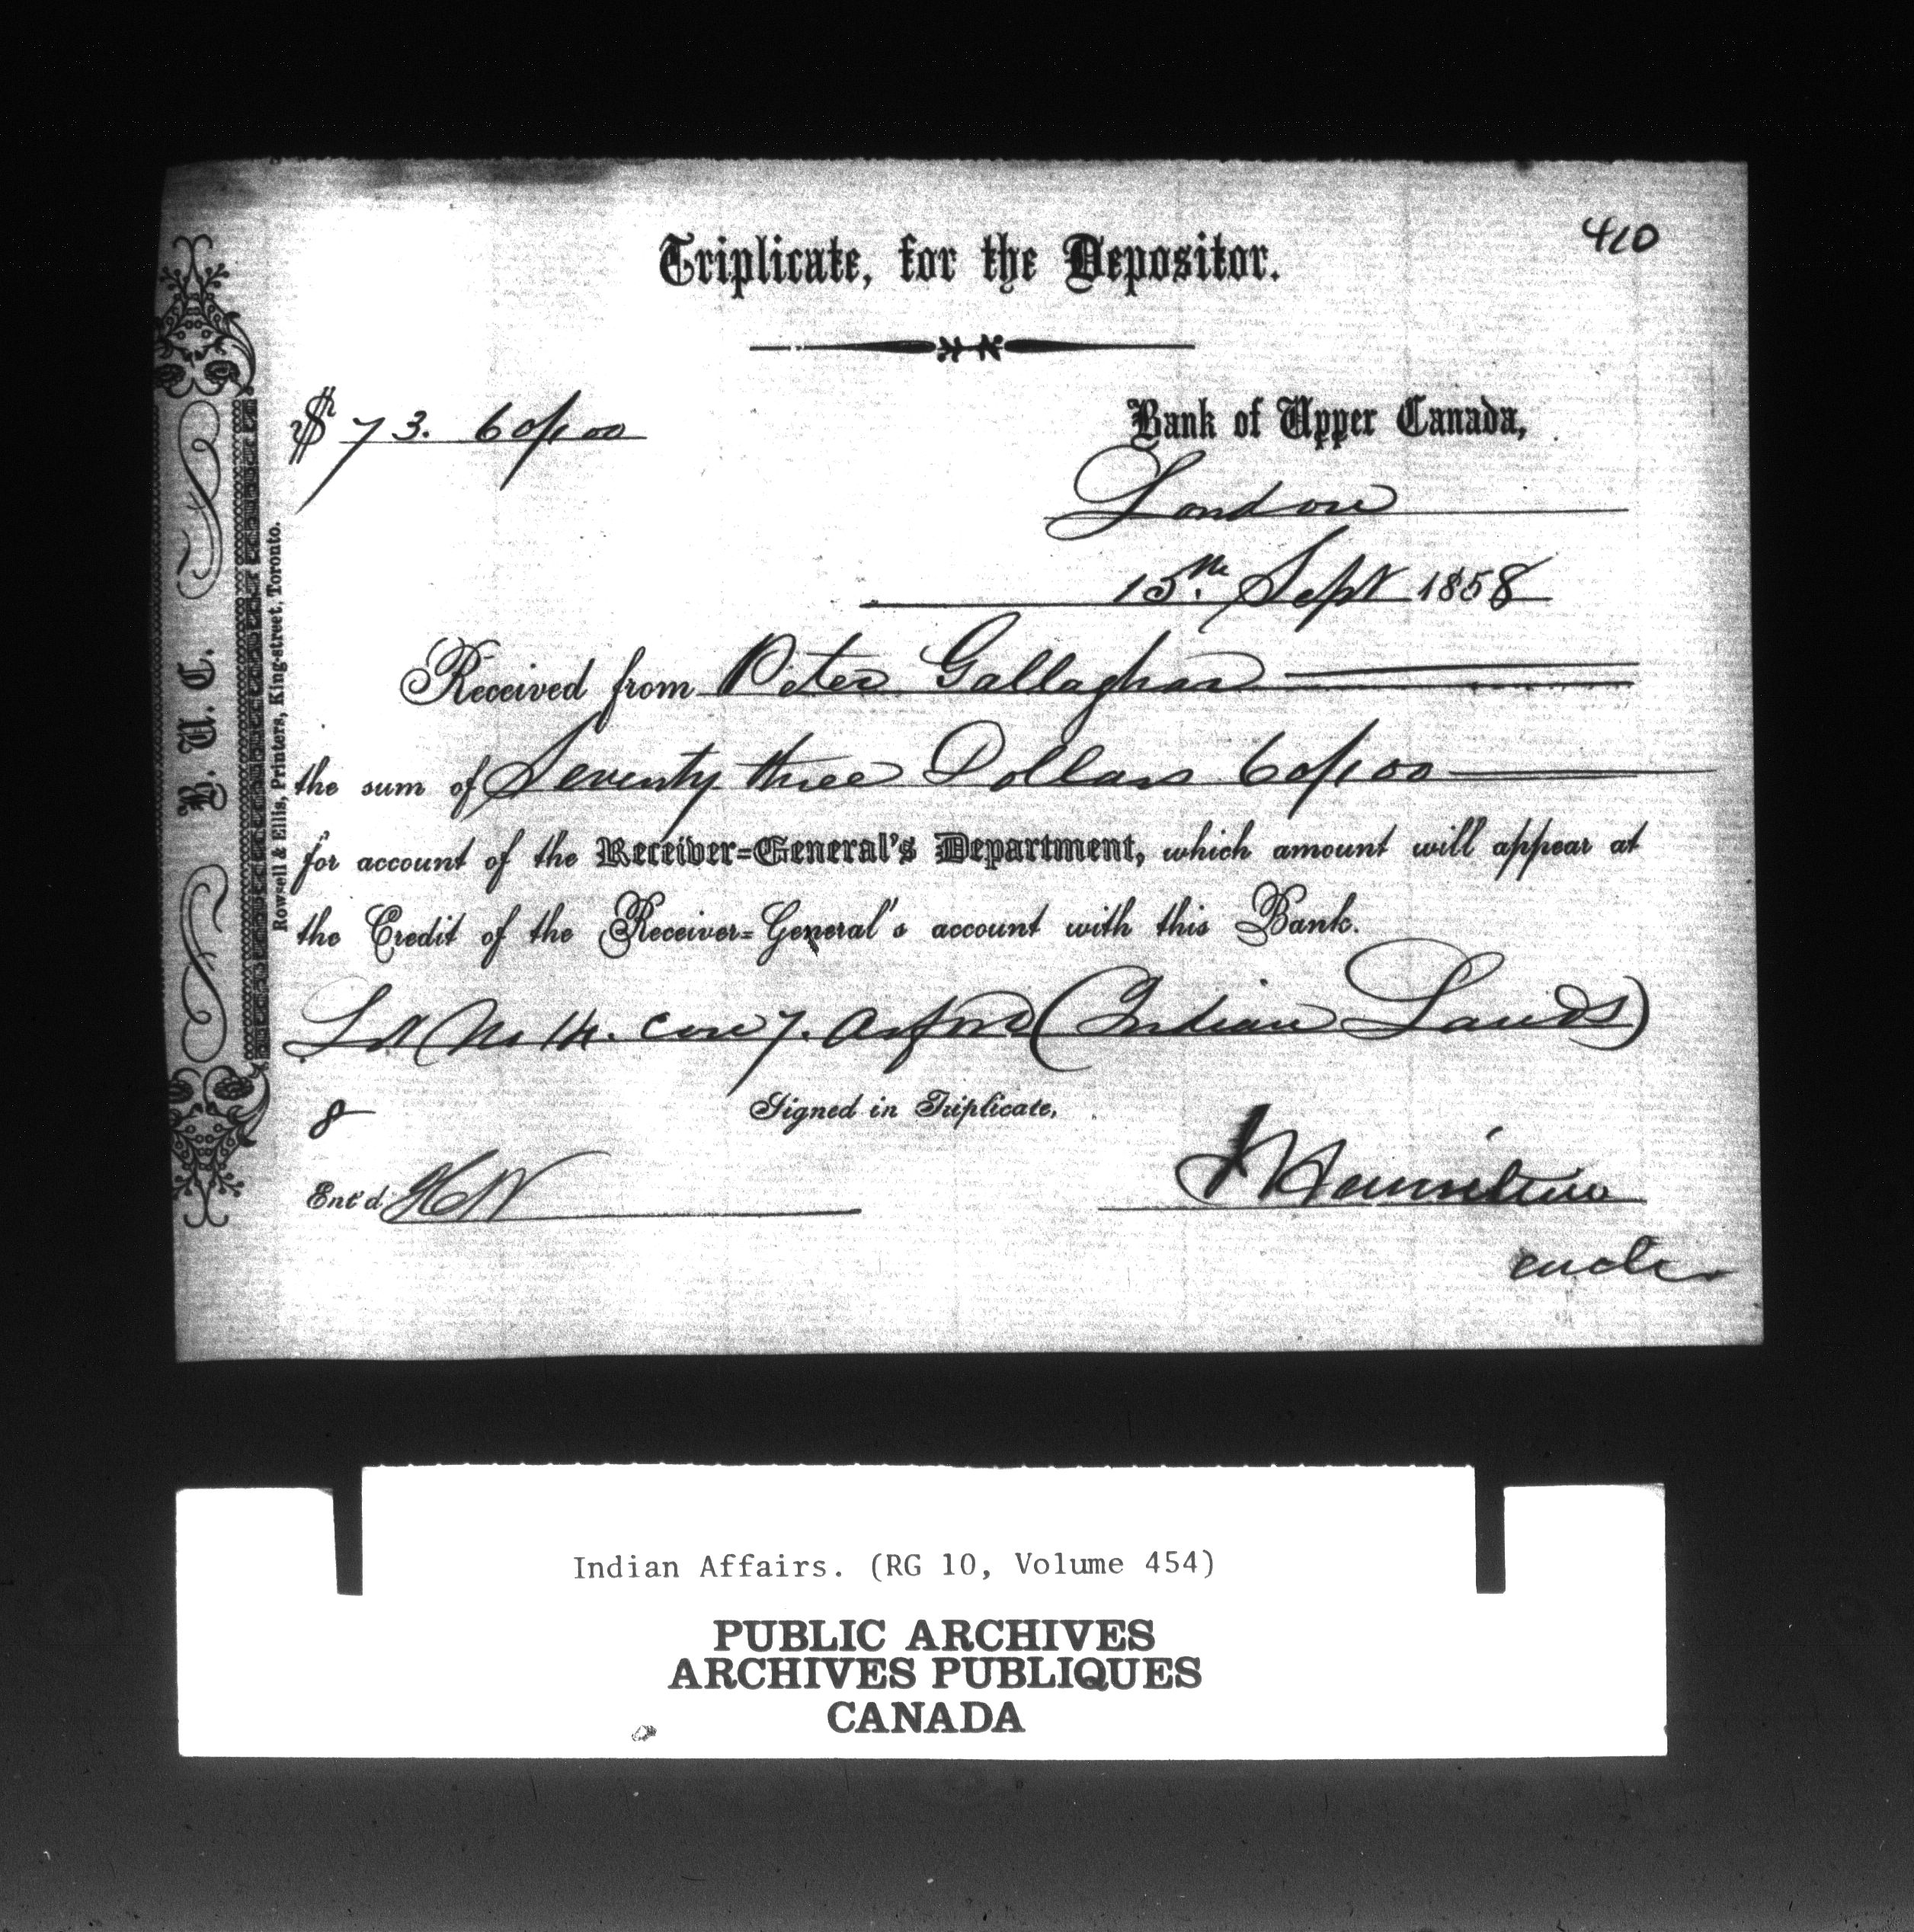 410
Triplicate, for the Depositor.
$ 73. 60/100
Bank of Upper Canada,
London
15th Sept 1858
Received from Peter Gallaghar
the sum of Seventy three Dollars 60/100
for account of the Receiver=General's Department, which amount will appear at
the Credit of the Receiver=General's account with this Bank.
Lot No 14. Con 7. Arford (Indian Lands)
8
Signed in Triplicate,
Ent'd
Hamilton
B. U. C.
Rowell & Ellis, Printers, King-street, Toronto.
Indian Affairs. (RG 10, Volume 454)
PUBLIC ARCHIVES
ARCHIVES PUBLIQUES
CANADA